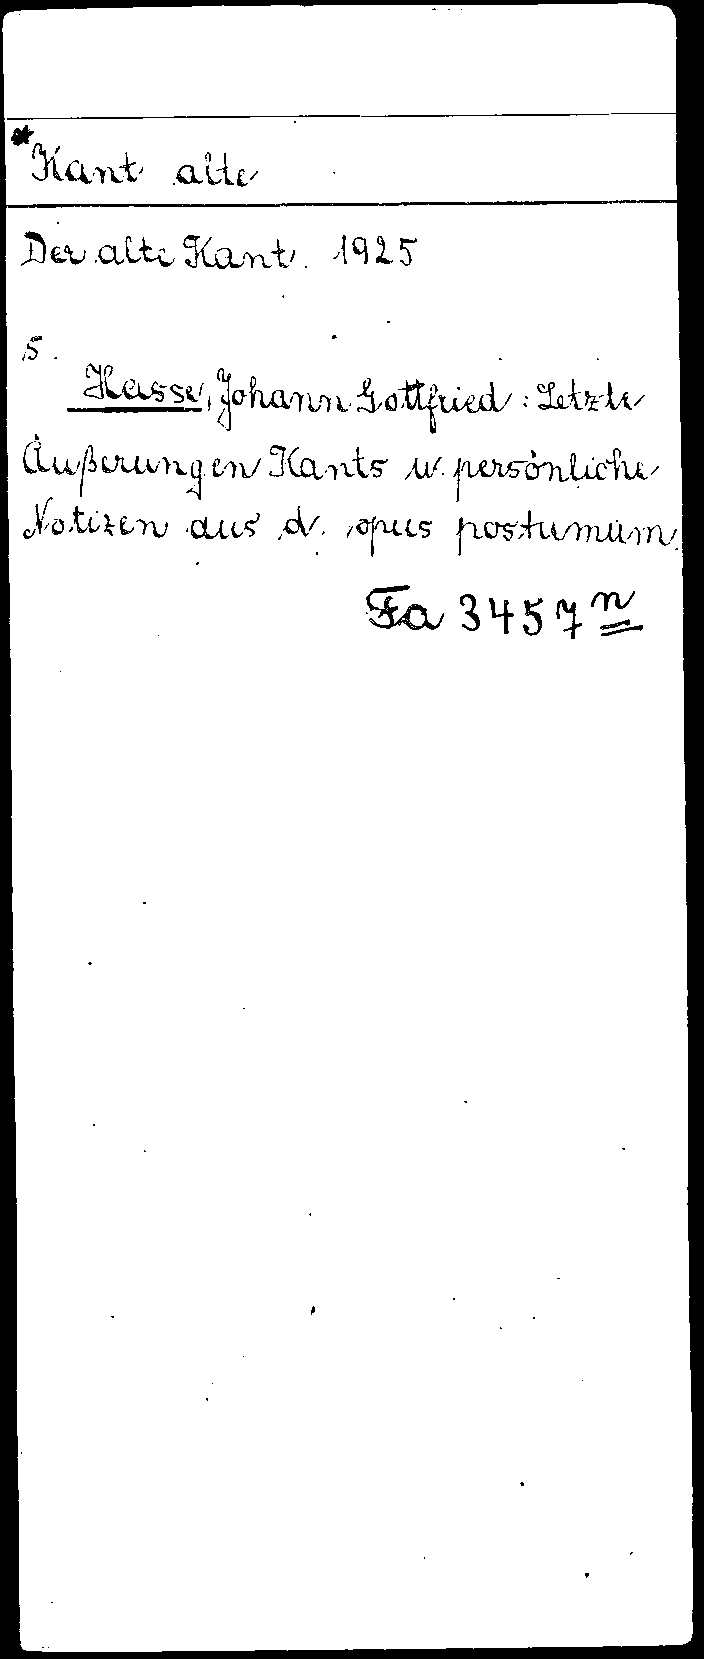 *Kant alte
Der alte Kant. 1925
5.
Hasse, Johann Gottfried: Letzte
Äußerungen Kants u. persönliche
Notizen aus d. opus postumum.
Fa 3457 n